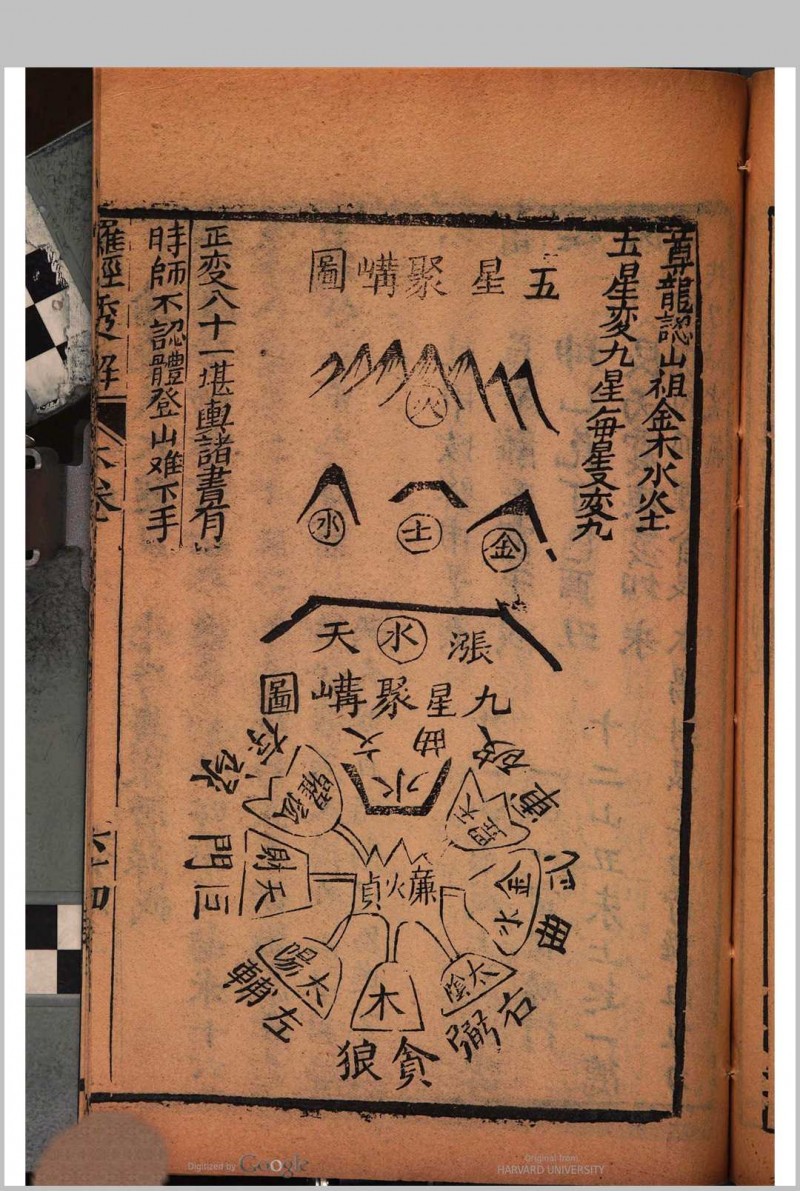 尊龍認山祖金木水火土
五星変九星每星又変九
五星聚嶹圖
火
金
土
水
漲水天
九星聚嶹圖
破軍
掃天
文曲
水
祿存
孤曜
巨門
天財
武曲
金水
廉火貞
左輔
太陽
貪狼
木
右弼
太陰
正変八十一堪輿諸書有
時師不認體登山难下手
羅經秀解
六卷
六十四
Digitized by Google
Original from
HARVARD UNIVERSITY